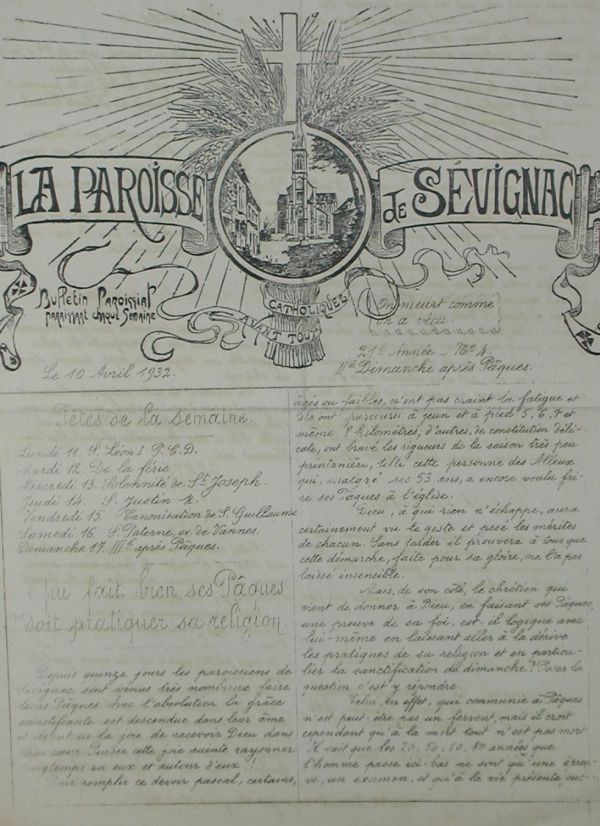 LA PAROISSE de SÉVIGNAC
Bulletin Paroissial
paraissant chaque Semaine
CATHOLIQUES
AVANT TOUT
On meurt comme
on a vécu
21e Année _ No 4.
Le 10 Avril 1932.
IIe Dimanche après Pâques.
Fêtes de la Semaine.
Lundi 11. S. Léon I P. C. D.
Mardi 12. De la férie
Mercredi 13. Solennité de St Joseph.
Jeudi 14. S. Justin
Vendredi 15. Canonisation de S. Guillaume
Samedi 16. S. Paterne, ev. de Vannes.
Dimanche 17. IIIe après Pâques.
Qui fait bien ses Pâques
doit pratiquer sa religion.
Depuis quinze jours les paroissiens de
Sévignac sont venus très nombreux faire
leurs Pâques. Avec l'absolution la grâce
sanctifiante est descendue dans leur âme
et ils ont eu la joie de recevoir Dieu dans
leur cœur. Puisse cette joie sainte rayonner
longtemps en eux et autour d'eux !
Pour remplir ce devoir pascal, certains,
âgés ou faibles, n'ont pas craint la fatigue et
ils ont parcouru à jeun et à pied 5, 6, 7 et
même 8 kilomètres; d'autres, de constitution déli-
cate, ont bravé les rigueurs de la saison très peu
printanière, telle cette personne des
qui, malgré ses 93 ans, a encore voulu fai-
re ses Pâques à l'église.
Dieu, à qui rien n'échappe, aura
certainement vu le geste et pesé les mérites
de chacun. Sans tarder il prouvera à tous que
cette démarche, faite pour sa gloire, ne l'a pas
laissé insensible.
Mais, de son côté, le chrétien qui
vient de donner à Dieu, en faisant ses Pâques,
une preuve de sa foi, est-il logique avec
lui-même en laissant aller à la dérive
les pratiques de sa religion et en particu-
lier la sanctification du dimanche ? Poser la
question c'est y répondre.
Celui, en effet, qui communie à Pâques
n'est peut-être pas un fervent, mais il croit
cependant qu'à la mort tout n'est pas mort
Il sait que les 20, 50, 60, 80 années que
l'homme passe ici-bas ne sont qu'une épreu-
ve, un examen, et qu'à la vie présente, suc-